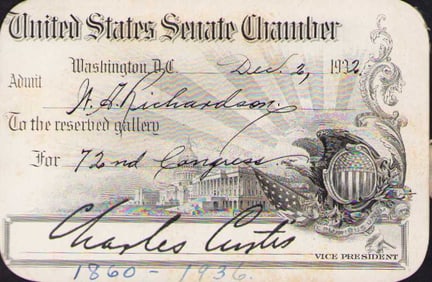 United States Senate Chamber
Washington D.C. Dec. 2, 1932.
Admit
W. A. Richardson
To the reserved gallery
For 72nd Congress
Charles Curtis
VICE PRESIDENT
1860 - 1936.